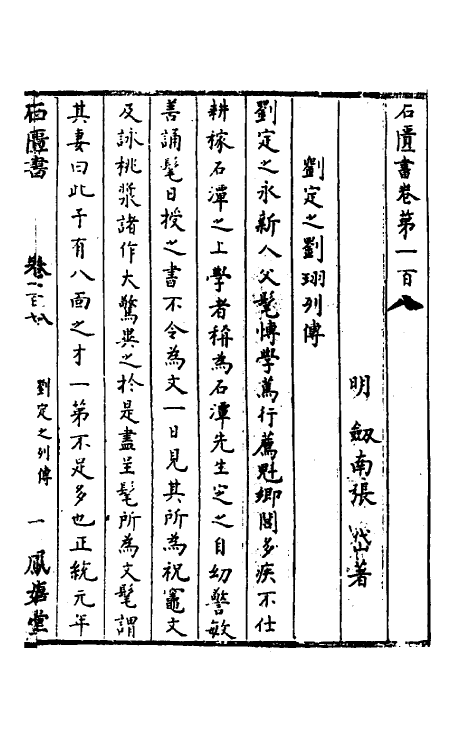 石匱書卷第一百八
明 劔南張 岱著
劉定之劉珝列傳
劉定之永新人父髦愽學篤行薦魁鄉闈多疾不仕
耕稼石潭之上學者稱為石潭先生定之自幼警敏
善誦髦日授之書不令為文一日見其所為祝竈文
及詠桃漿諸作大驚異之於是盡呈髦所為文髦謂
其妻曰此子有八面之才一第不足多也正統元年
石匱書 卷一百八 劉定之列傳 一 鳳嬉堂